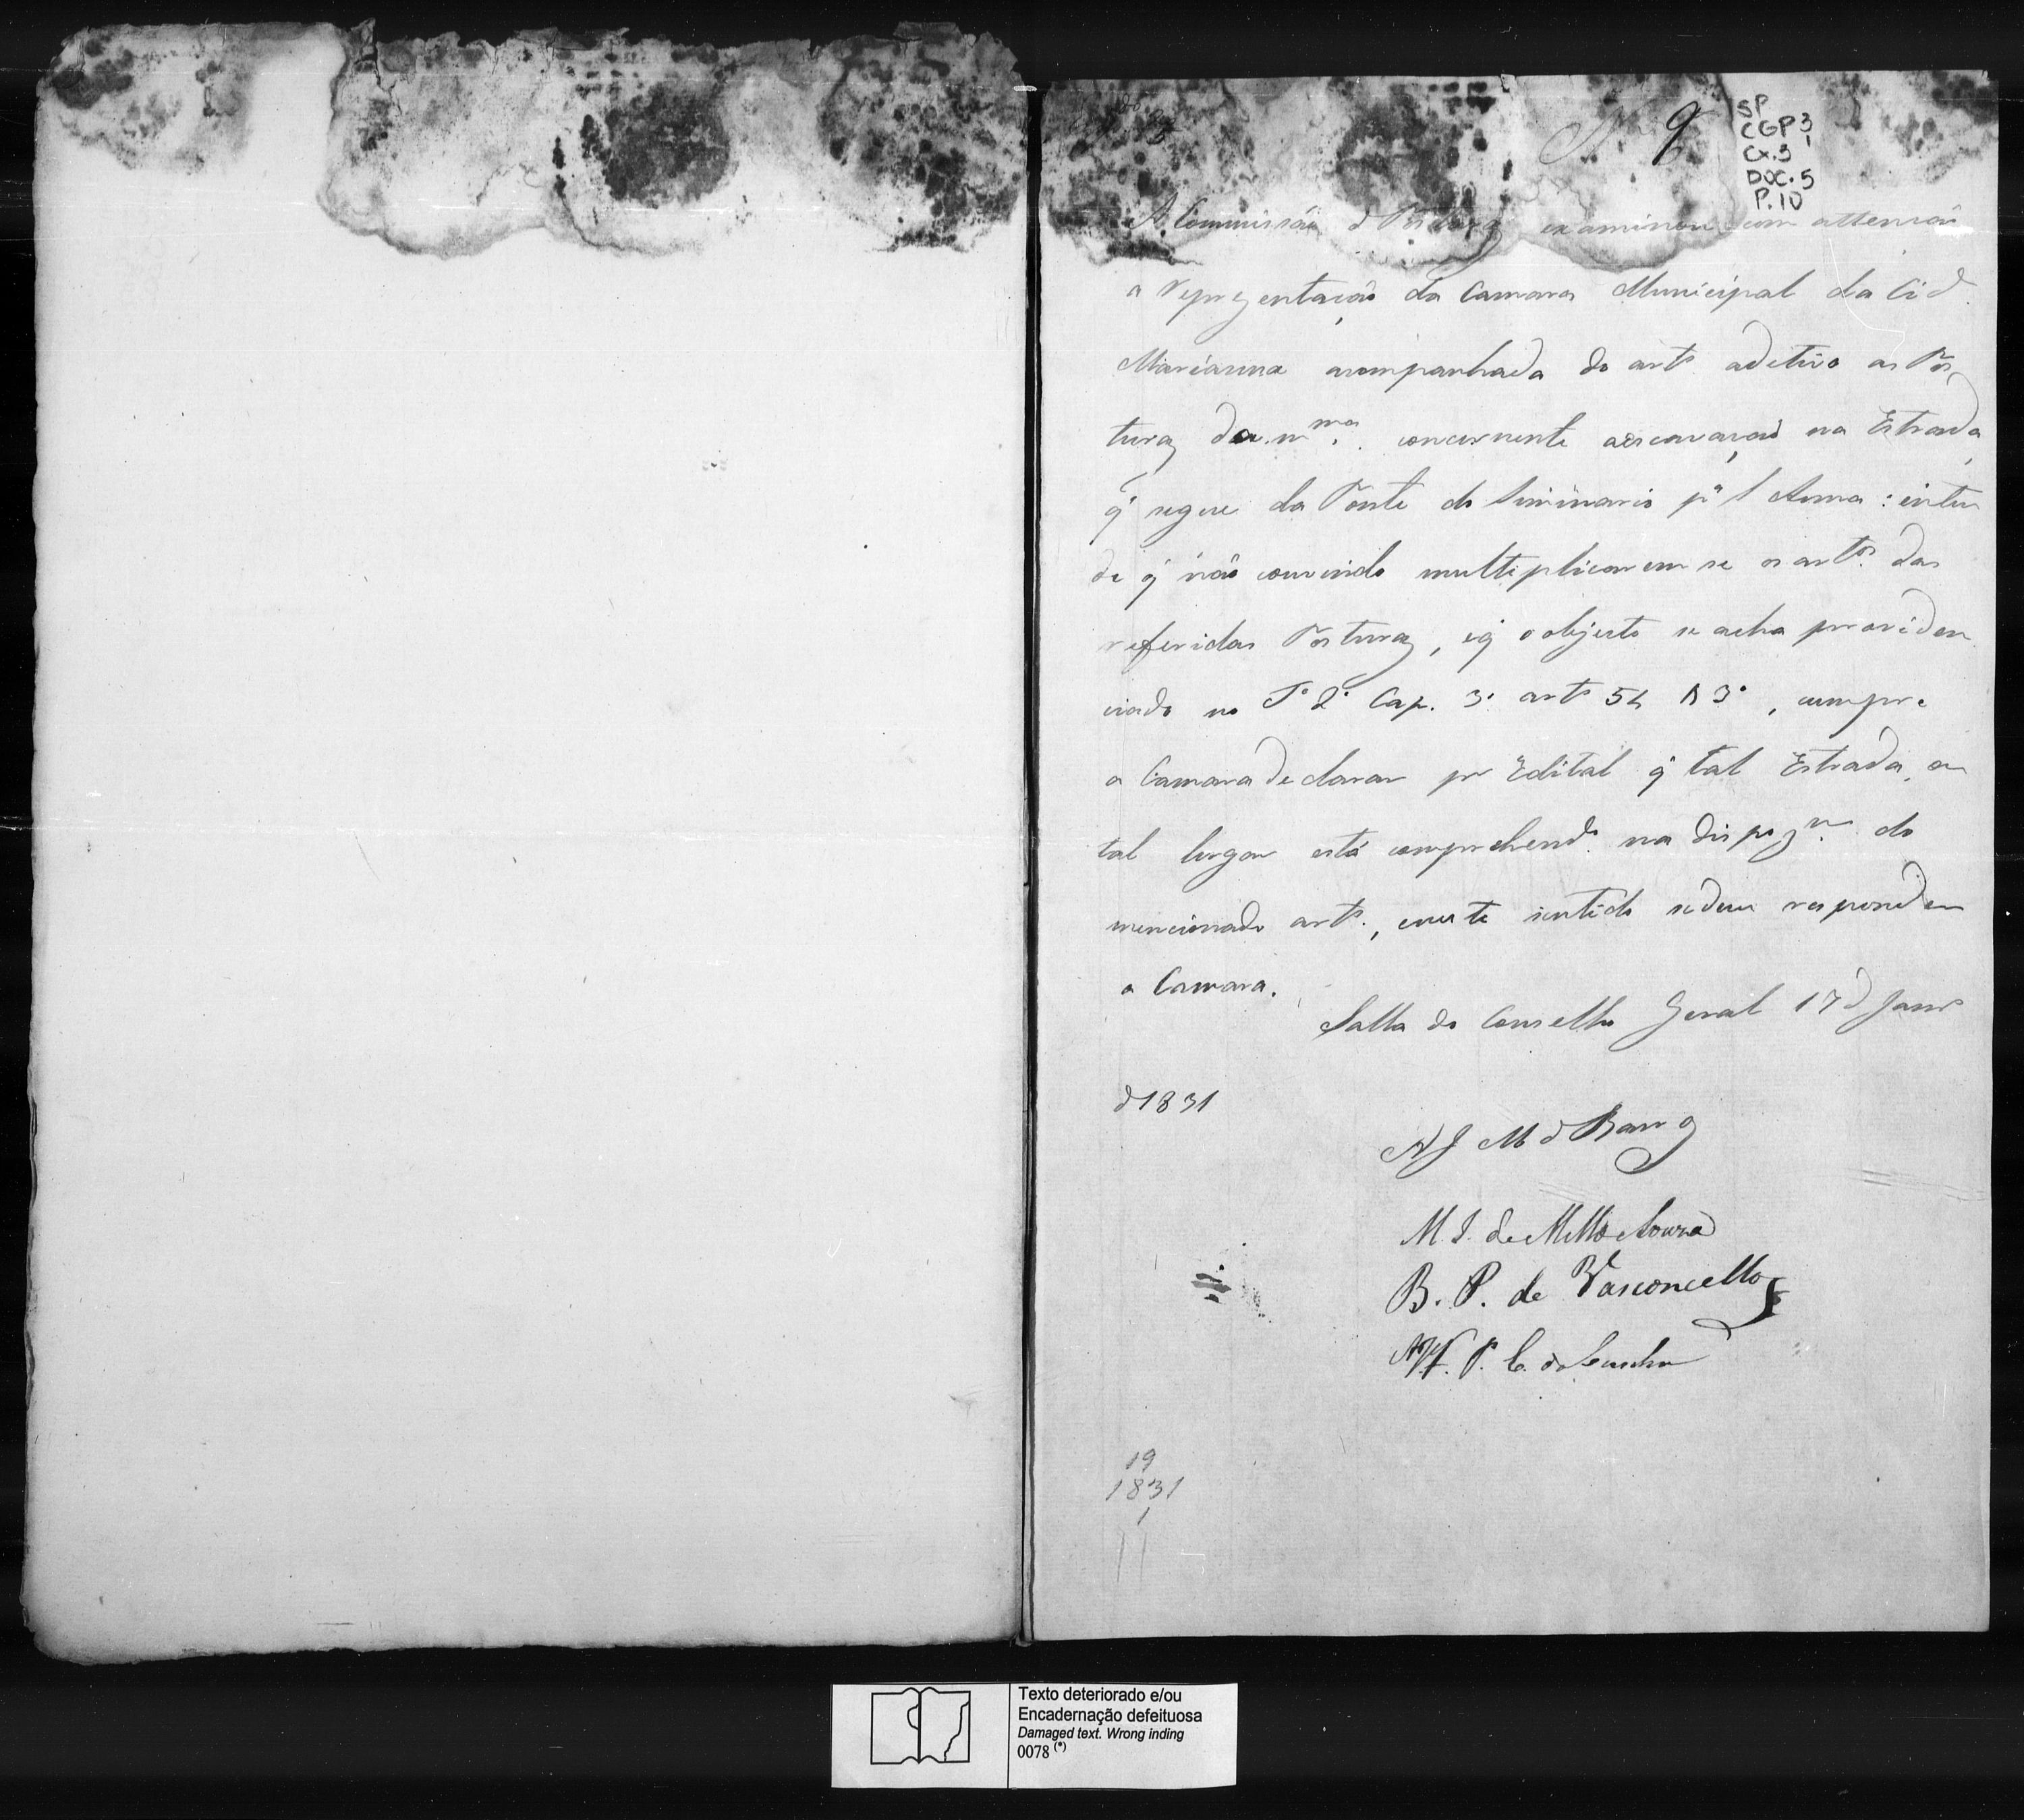 N. 9
SP
CGP 3
Cx. 3
DOC. 5
P. 10
A Commissão d Posturas examinou com attenção
a reprezentação da Camara Municipal da Cid.
Marianna acompanhada do artº aditivo as Pos
turas da mma. concernente a escavação na Estrada
q̃ segue da Ponte do Siminario pª S Anna : enten
de q̃ não convindo multiplicarem se os artos das
referidas Posturas, e q̃ o objecto se acha providen
ciado no Tº 2º Cap. 3º artº 54 § 3º, cumpre
a Camara declarar por Edital q̃ tal Estrada, ou
tal lugar está comprehendº na dispozm. do
mencionado artº., e neste sentido se deve responder
a Camara.
Salla do Conselho Geral 17 d Janrº
d 1831
A J M d
M. I. de Mello e Souza
B. P. de Vasconcellos
P. C. da Cunha
19
1831
1
Texto deteriorado e/ou
Encadernação defeituosa
Damaged text. Wrong inding
0078 (*)